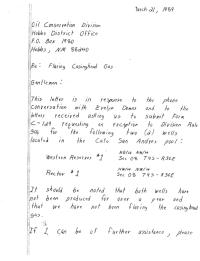 March 21, 1989
Oil Conservation Division
Hobbs District Office
P.O. Box 1980
Hobbs, NM 88240
Re: Flaring Casinghead Gas
Gentlemen:
This letter is in response to the phone
conversation with Evelyn Downs and to the
letters received asking us to submit Form
C-129 requesting an exception to Division Rule
306 for the following two (2) wells
located in the Cato San Andres pool:
Western Reserves #1
Sec 08 T9S-R30E
Rector #1
Sec 08 T9S-R30E
It should be noted that both wells have
not been produced for over a year and
that we have not been flaring the casinghead
gas.
If I can be of further assistance, please